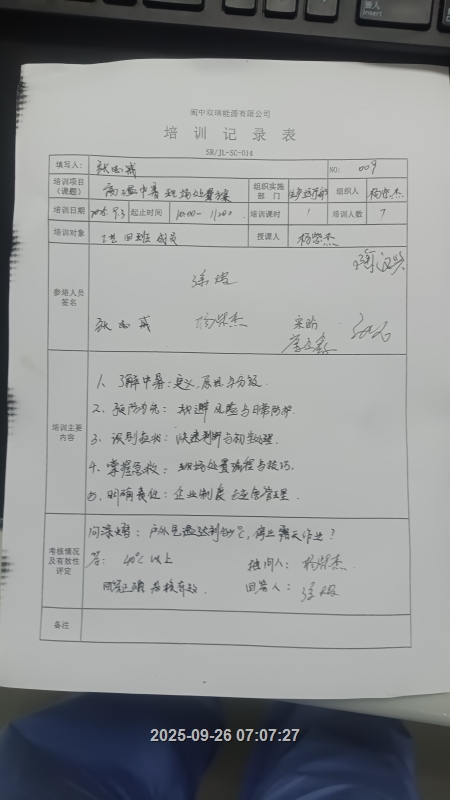 嵌入
Insert
阆中双瑞能源有限公司
培训记录表
SR/JL-SC-014
填写人: NO: 009
培训项目(课题) 高温中暑现场处置方案 组织实施部门 组织人 杨荣杰
培训日期 2025.9.3 起止时间 10:00- 11:00 培训课时 1 培训人数 7
培训对象 四班成员 授课人 杨荣杰
参培人员签名
杨荣杰
培训主要内容
1、了解中暑:定义、原因与分级.
2、预防为先:规避风险与日常防护.
3、识别症状:快速判断与初步处理.
4、掌握急救:现场处置流程与技巧.
5、明确责任:企业制度与应急管理.
考核情况及有效性评定
问 : 户外气温达到多少℃,停止露天作业?
答: 40℃以上 提问人: 杨荣杰.
回答正确 考核有效. 回答人:
备注
2025-09-26 07:07:27